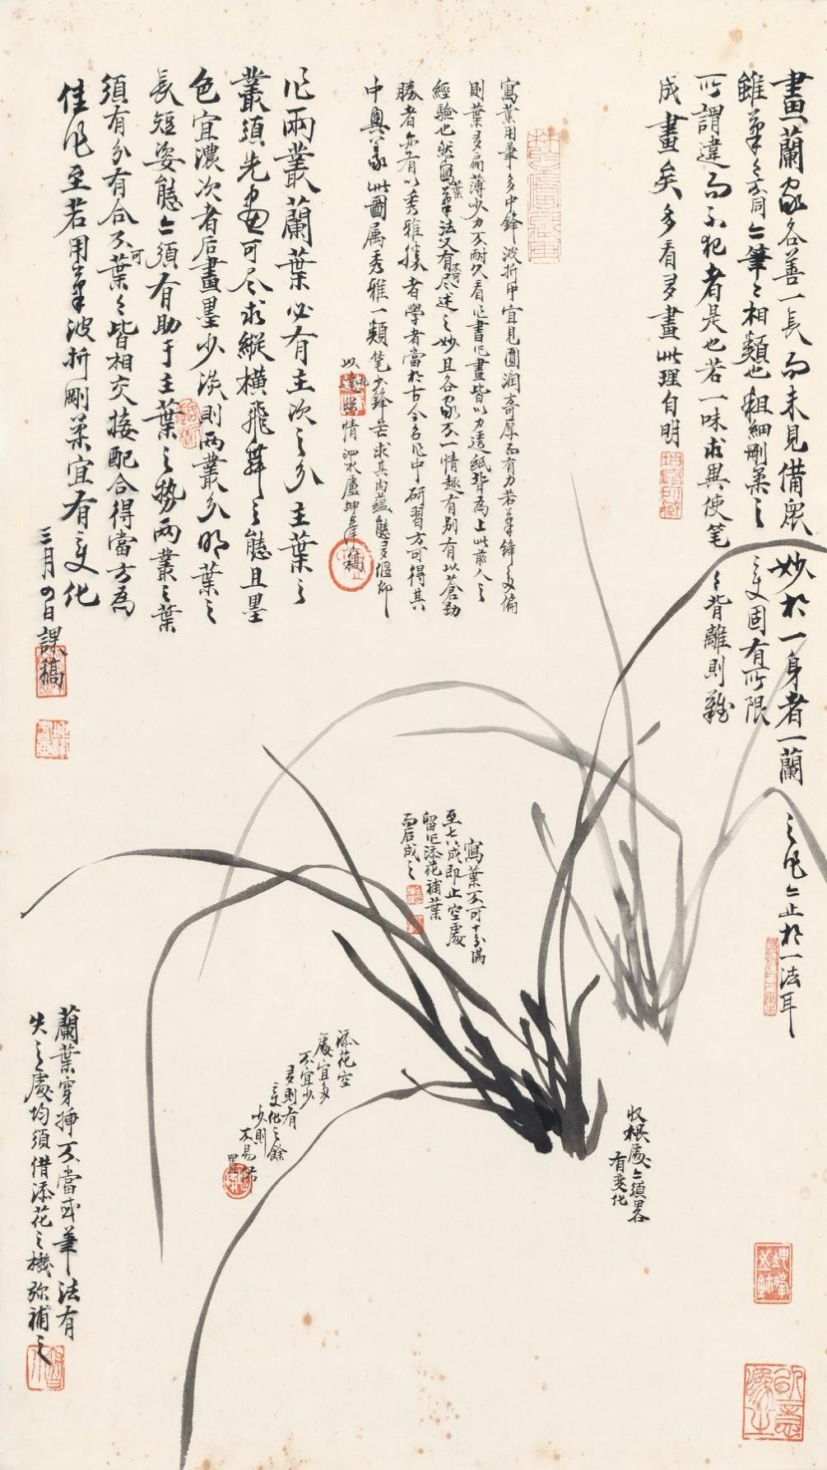 畫蘭家各善一長而未見備眾妙於一身者一蘭之作亦止於一法耳
雖筆筆不同亦筆筆相類也粗細剛柔之變固有所限
所謂違而不犯者是也若一味求異使筆筆背離則難
成畫矣多看多畫此理自明
寫葉用筆多中鋒波折中宜見圓潤奇厚而有力若筆鋒多偏
則葉多扁薄少力不耐久看作書作畫皆以力透紙背為上此前人之
經驗也然寫葉筆法又有盡述之妙且各家不一情趣有別有以蒼勁
勝者亦有以秀雅勝者學者當於古今名作中研習方可得其
中奧義此圖属秀雅一類筆少鋒芒求其內蘊態多偃仰
以達情泗水盧坤峰稿
作兩叢蘭葉必有主次之分主葉之
叢須先畫可尽求縱橫飛舞之態且墨
色宜濃次者后畫墨少淡則兩叢分明葉之
長短姿態亦須有助于主葉之勢兩叢之葉
須有分有合不可葉葉皆相交接配合得當方為
佳作至若用筆波折剛柔宜有變化
三月四日課稿
寫葉不可十分滿
至七八成即止空處
留作添花補葉
而后成之
添花空
處宜多
不宜少
多則有
變化之餘
少則
不易佈
置
收根處亦須畧
有變化
蘭葉穿插不當或筆法有
失之處均須借添花之機弥補之